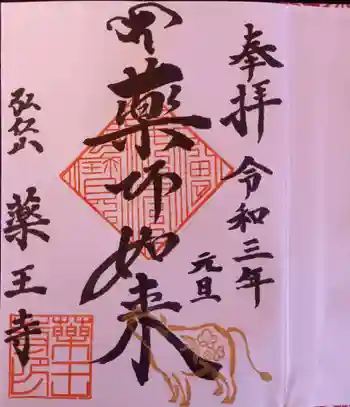 奉拝
令和三年
元旦
薬師如来
弘仏山
薬王寺